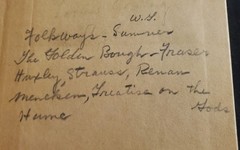 W. G.
Folkways - Sumner
The Golden Bough - Frazer
Huxley, Strauss, Renan
Mencken, Treatise on the
Gods
Hume